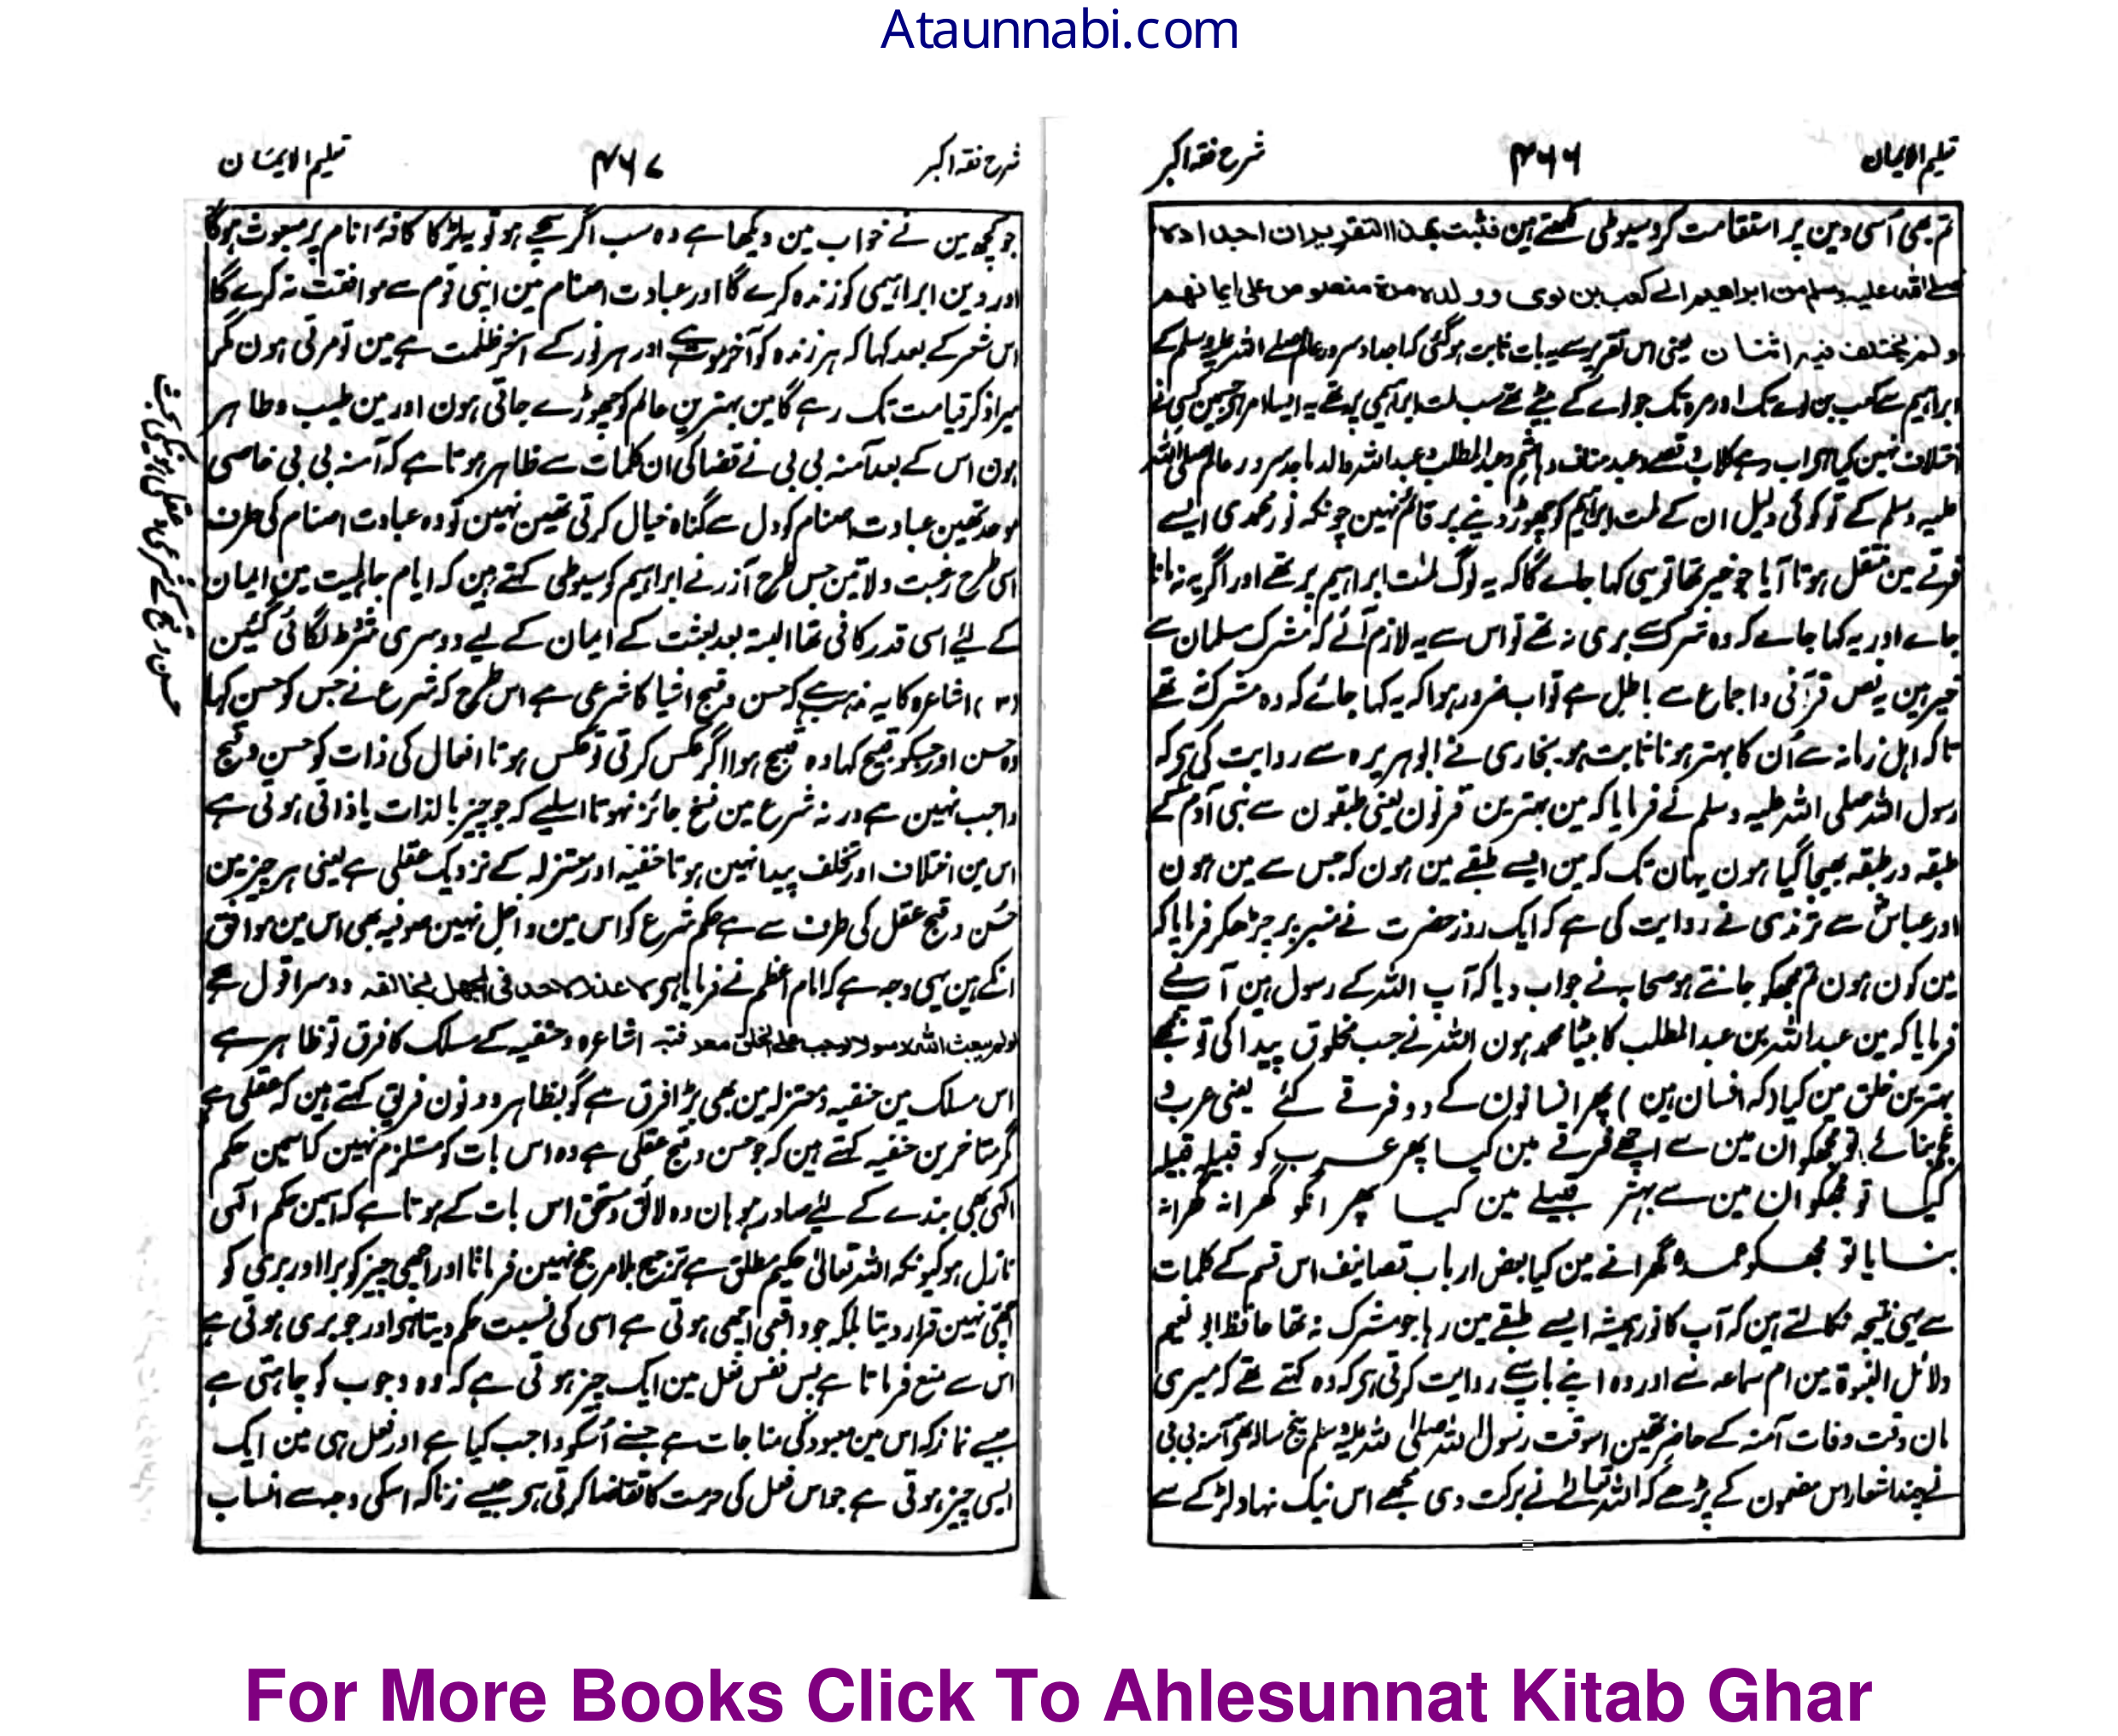 Ataunnabi.com
تعلیم الایمان ۴۶۶ شرح فقہ اکبر
تم بھی اسی دین پر استقامت کرو سیوطی لکھتے ہین فثبت بھذا التقریر ان اجدادہ
صلے اللہ علیہ وسلم من ابراھیم الے کعب بن لوی و ولدہ مرۃ منصوص علی ایمانھم
ولم یختلف فیہ اثنان یعنی اس تقریر سے یہ بات ثابت ہوگئی کہ اجداد سرور عالم صلے اللہ علیہ وسلم کے
ابراہیم سے کعب بن لوے تک اور مرہ تک جو لوے کے بیٹے تھے سب ملت ابراہیمی پر تھے یہ ایسا امر ہے جسمین کسی نے
اختلاف نہین کیا اب رہے کلاب و قصے و عبد مناف و ہاشم و عبد المطلب و عبد اللہ والد ماجد سرور عالم صلی اللہ
علیہ وسلم کے تو کوئی دلیل ان کے ملت ابراہیم کو چھوڑ دینے پر قائم نہین چونکہ نور محمدی ایسے
فرقے مین منتقل ہوتا آیا جو خیر تھا تو یہی کہا جاے گا کہ یہ لوگ ملت ابراہیم پر تھے اور اگر یہ نہ مانا
جاے اور یہ کہا جاے کہ وہ شرک سے بری نہ تھے تو اس سے یہ لازم آئے کہ مشرک مسلمان سے
خیر ہین یہ نص قرآنی و اجماع سے باطل ہے تو اب ضرور ہوا کہ یہ کہا جائے کہ وہ مشرک نہ تھے
تاکہ اہل زمانہ سے اُن کا بہتر ہونا ثابت ہو۔ بخاری نے ابوہریرہ سے روایت کی ہے کہ
رسول اللہ صلی اللہ علیہ وسلم نے فرمایا کہ مین بہترین قرنون یعنی طبقون سے بنی آدم کے
طبقہ در طبقہ بھیجا گیا ہون یہان تک کہ مین ایسے طبقے مین ہون کہ جس سے مین ہون
اور عباسؓ سے ترمذی نے روایت کی ہے کہ ایک روز حضرت نے منبر پر چڑھکر فرمایا کہ
مین کون ہون تم مجھکو جانتے ہو صحابہ نے جواب دیا کہ آپ اللہ کے رسول ہین آپ نے
فرمایا کہ مین عبد اللہ بن عبد المطلب کا بیٹا محمد ہون اللہ نے جب مخلوق پیدا کی تو مجھے
بہترین خلق مین کیا (کہ انسان ہین) پھر انسانون کے دو فرقے کئے یعنی عرب و
عجم بنائے تو مجھکو ان مین سے اچھے فرقے مین کیا پھر عرب کو قبیلہ قبیلہ
کیا تو مجھکو ان مین سے بہتر قبیلے مین کیا پھر انکو گھرانہ گھرانہ
بنایا تو مجھکو عمدہ گھرانے مین کیا بعض ارباب تصانیف اس قسم کے کلمات
سے یہی نتیجہ نکالتے ہین کہ آپ کا نور ہمیشہ ایسے طبقے مین رہا جو مشرک نہ تھا حافظ ابو نعیم
دلائل النبوۃ مین ام سماعہ سے اور وہ اپنے باپ سے روایت کرتی ہے کہ وہ کہتے تھے کہ میری
مان وقت وفات آمنہ کے حاضر تھین اسوقت رسول اللہ صلی اللہ علیہ وسلم پنج سالہ تھے آمنہ بی بی
نے چند اشعار اس مضمون کے پڑھے کہ اللہ تعالےٰ نے برکت دی مجھے اس نیک نہاد لڑکے سے
شرح فقہ اکبر ۴۶۷ تعلیم الایمان
جو کچھ مین نے خواب مین دیکھا ہے وہ سب اگر سچ ہو تو یہ لڑکا کافۂ انام پر مبعوث ہوگا
اور دین ابراہیمی کو زندہ کرے گا اور عبادت اصنام مین اپنی قوم سے موافقت نہ کرے گا
اس شعر کے بعد کہا کہ ہر زندہ کو آخر موت ہے اور ہر نور کے آخر ظلمت ہے مین تو مرتی ہون مگر
میرا ذکر قیامت تک رہے گا مین بہترین عالم کو چھوڑے جاتی ہون اور مین طیب و طاہر
ہون اس کے بعد آمنہ بی بی نے قضا کی ان کلمات سے ظاہر ہوتا ہے کہ آمنہ بی بی خاصی
موحد تھین عبادت اصنام کو دل سے گناہ خیال کرتی تھین نہین تو وہ عبادت اصنام کی طرف
اسی طرح رغبت دلاتین جس طرح آذر نے ابراہیم کو سیوطی کہتے ہین کہ ایام جاہلیت مین ایمان
کے لیے اسی قدر کافی تھا البتہ بعد بعثت کے ایمان کے لیے دوسری شرط لگائی گئین
(۳) اشاعرہ کا یہ مذہب ہے کہ حسن و قبح اشیا کا شرعی ہے اس طرح کہ شرع نے جس کو حسن کہا
وہ حسن اور جسکو قبیح کہا وہ قبیح ہوا اگر عکس کرتی تو عکس ہوتا افعال کی ذات کو حسن و قبح
واجب نہین ہے ورنہ شرع مین نسخ جائز نہوتا اسلیے کہ جو چیز بالذات یا ذاتی ہوتی ہے
اس مین اختلاف اور تخلف پیدا نہین ہوتا حنفیہ اور معتزلہ کے نزدیک عقلی ہے یعنی ہر چیز مین
حُسن و قبح عقل کی طرف سے ہے حکم شرع کو اس مین دخل نہین صوفیہ بھی اس مین موافق
انکے ہین یہی وجہ ہے کہ امام اعظم نے فرمایا ہے لا عذر لاحد فی الجھل بخالقہ دوسرا قول ہے
لو لم یبعث اللہ رسولا لوجب علی الخلق معرفتہ اشاعرہ و حنفیہ کے مسلک کا فرق تو ظاہر ہے
اس مسلک مین حنفیہ و معتزلہ مین بھی بڑا فرق ہے گو بظاہر دونون فریق کہتے ہین کہ عقلی ہے
مگر متاخرین حنفیہ کہتے ہین کہ جو حسن و قبح عقلی ہے وہ اس بات کو مستلزم نہین کہ اسمین حکم
الٰہی بھی بندے کے لیے صادر ہو ہان وہ لائق و مستحق اس بات کے ہوتا ہے کہ اسمین حکم الٰہی
نازل ہو کیونکہ اللہ تعالیٰ حکیم مطلق ہے ترجیح بلا مرجح نہین فرماتا اور اچھی چیز کو برا اور بری کو
اچھی نہین قرار دیتا بلکہ جو واقعی اچھی ہوتی ہے اسی کی نسبت حکم دیتا ہے اور جو بری ہوتی ہے
اُس سے منع فرماتا ہے پس نفس فعل مین ایک چیز ہوتی ہے کہ وہ وجوب کو چاہتی ہے
جیسے نماز کہ اس مین معبود کی مناجات ہے جسنے اُسکو واجب کیا ہے اور فعل ہی مین ایک
ایسی چیز ہوتی ہے جو اس فعل کی حرمت کا تقاضا کرتی ہے جیسے زنا کہ اسکی وجہ سے انساب
حسن و قبح کے شرعی و عقلی ہونے کی بحث
For More Books Click To Ahlesunnat Kitab Ghar